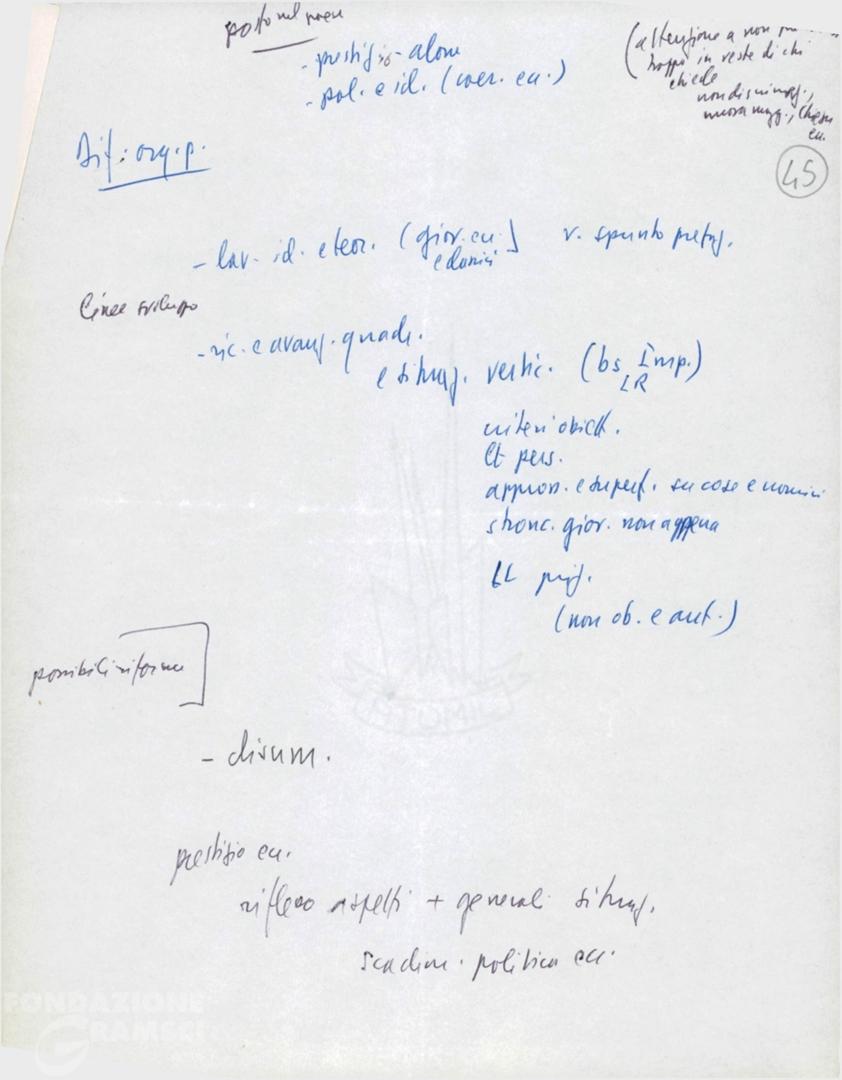 posto nel paese
- prestigio - alone
- pol. e id. (coer. ecc.)
(attenzione a non
troppo in veste di chi
chiede
non discriminaz.,
nuova magg., Chiesa
ecc.
45
Dif: org. p.
- lav. id. e teor. (gior. ecc.) v. spunto prefaz.
e donne
Linee sviluppo
- ric. e avanz. quadr.
e situaz. vertic. (bs Imp.)
LR
criteri obiett.
Ct pers.
appross. e superf. su cose e uomini
stronc. gior. non appena
LL prig.
(non ob. e aut.)
possibili riforme
- disum.
prestigio ecc.
riflesso aspetti + generali situaz.
scadim. politica ecc.
ATOMIC
FONDAZIONE
GRAMSCI